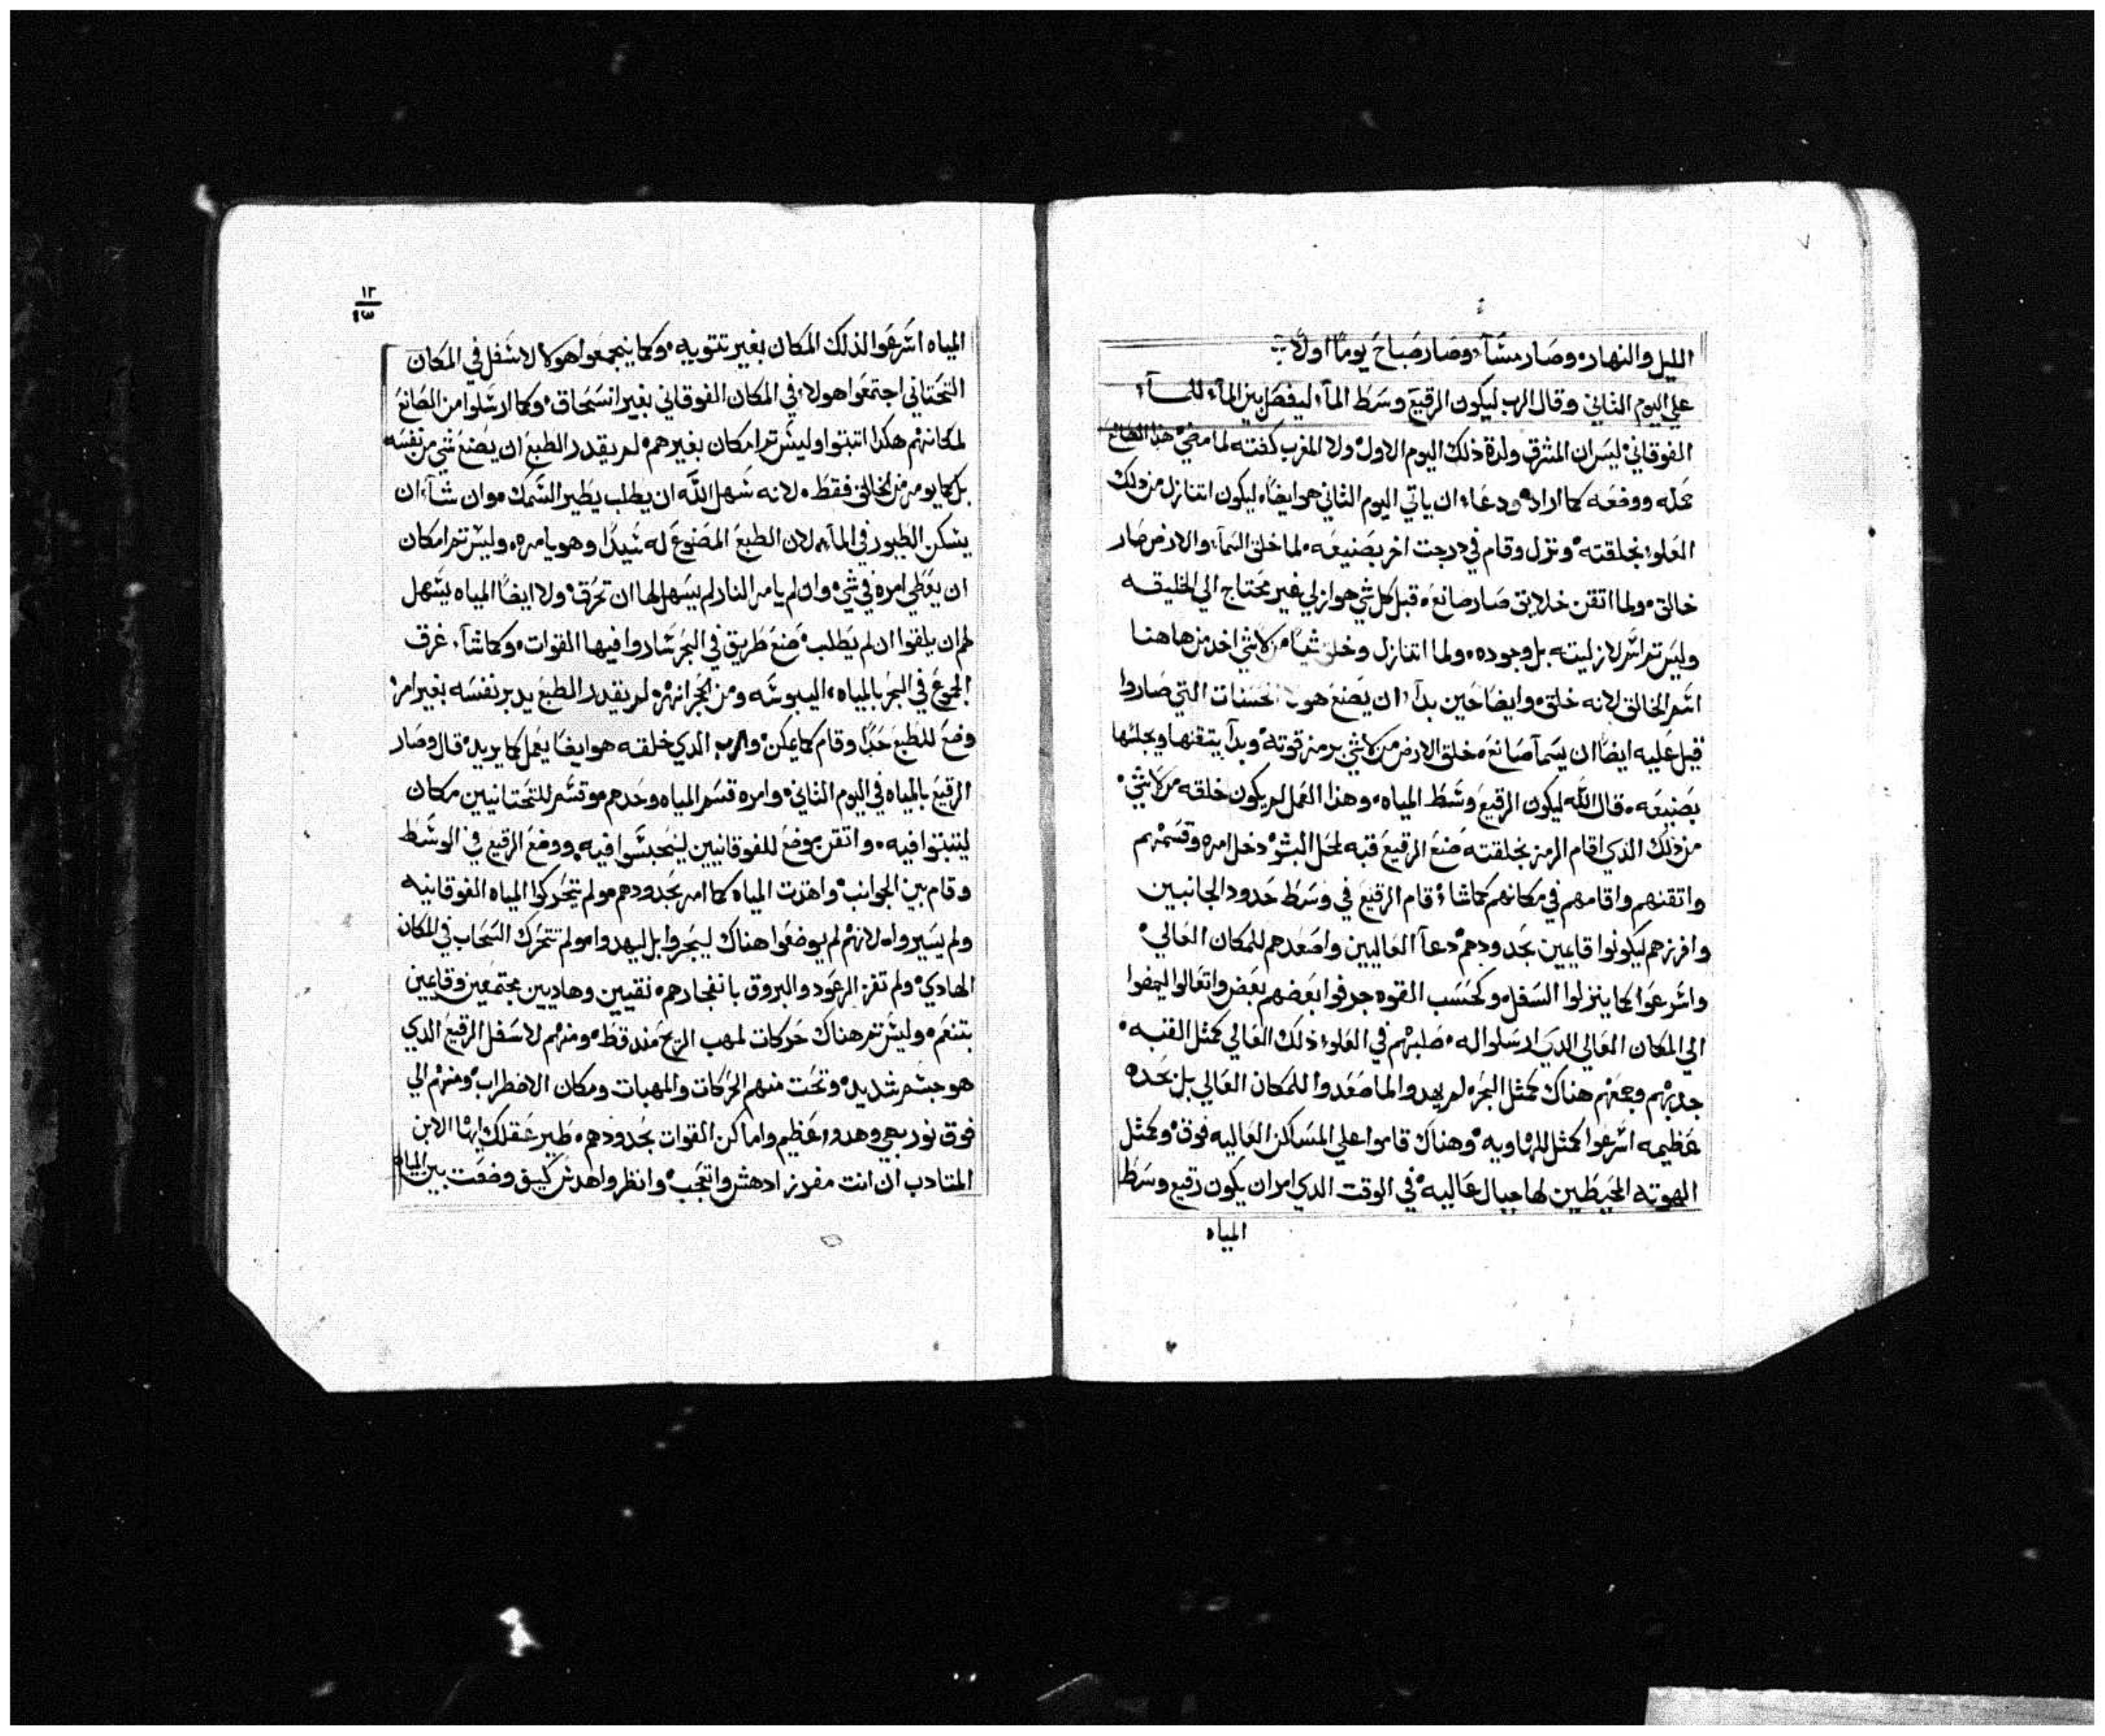 الليل والنهار، وصار مسآء، وصار صباح يومًا اولاً
علي اليوم الثاني وقال الرب ليكون الرقيع وسط المآء ليفصل بين المآء للمآء
الفوقاني ليس ان المشرق ولدة ذلك اليوم الاول ولا المغرب كفته لما مضي هذا الصانع
عمله ووضعه كما اراد ودعاء ان ياتي اليوم الثاني هو ايضاً ليكون اتنازل من ذلك
العلو بخلقته ونزل وقام في درجت اخر بصنيعه لما خلق السمآء والارض صار
خالق ولما اتقن خلايق صار صانع قبل كل شي هو ازلي غير محتاج الي الخليقه
وليس تم اسم لازليته بل وجوده ولما اتنازل وخلق شياً من لا شي اخد من هاهنا
اسم الخالق لانه خلق وايضا حين بدآء ان يصنع الحسنات التي صاروا
قيل عليه ايضاً ان يسمآ صانع خلق الارض من لا شي برمز قوته وبدآ يتقنها ويجلها
بصنيعه قال الله ليكون الرقيع وسط المياه وهذا العمل لم يكون خلقه من لا شي
من ذلك الذي اقام الرمز بخلقته صنع الرقيع قبه دخل امره وقسمهم
واتقنهم واقامهم في مكانهم كما شاء قام الرقيع في وسط حدود الجانبين
وافرزهم ليكونوا قايمين بحدودهم دعآ العاليين واصعدهم للمكان العالي
واسرعوا كما ينزلوا السفل وكحسب القوه جرفوا بعضهم بعض واتعالوا ليمضوا
الي المكان العالي الدي ارسلوا له صلبهم في العلو ذلك العالي كمثل القبه
جدبهم وجمعهم هناك كمثل البحر لم يهدوا لما صعدوا للمكان العالي بل بحده
عظيمه اسرعوا كمثل للهاويه وهناك قاموا علي المساكن العاليه فوق وكمثل
الهوته المحيطين لها جبال عاليه في الوقت الدي امر ان يكون رقيع وسط
المياه
١٢
٩٣
المياه اسرعوا لذلك المكان بغير تتويه وكما ينجمعوا هولا لاسفل في المكان
التحتاني اجتمعوا هولاء في المكان الفوقاني بغير انسحاق وكما ارسلوا من الصانع
لمكانهم هكدا اتبتوا وليس تم امكان بغيرهم لم يقدر الطبع ان يصنع شي من نفسه
بل كما يومر من الخالق فقط لانه سهل الله ان يطلب يطير السمك وان شآء ان
يسكن الطيور في المآء لان الطبع المصنوع له شيدًا وهو يامره وليس تم امكان
ان يعطي امره في شي وان لم يامر النار لم يسهل لها ان تحرق ولا ايضاً المياه يسهل
لهم ان يلقوا ان لم يطلب صنع طريق في البحر سادوا فيها القوات وكما شآء غرق
الجموع في البحر بالمياه اليبوسه ومن الحجر انهر لم يقدر الطبع يدبر نفسه بغير امر
وضع للطبع حدًا وقام كما يمكن والرب الدي خلقه هو ايضًا يعمل كما يريد قال وصار
الرقيع بالمياه في اليوم الثاني وامره قسم المياه وحدهم للتحتانيين مكان
ليتبتوا فيه واتقن موضع للفوقانيين لينحبسوا فيه ووضع الرقيع في الوسط
وقام بين الجوانب واهدت المياه كما امر بحدودهم ولم يتحركوا المياه الفوقانيه
ولم يسيروا لانهم لم يوضعوا هناك ليجروا بل ليهدوا ولم تتحرك السحاب في المكان
الهادي ولم تفز الرعود والبروق بانفجارهم نقيين وهاديين مجتمعين وقايمين
بتنعم وليس تم هناك حركات لمهب الريح مند قط ومنهم لاسفل الرقيع الدي
هو جسم شديد وتحت منهم الحركات والمهبات ومكان الاضطراب ومنهم الي
فوق نور بهي وهدو عظيم واماكن القوات بحدودهم طير عقلك ايها الابن
المتادب ان انت مفرز ادهش واتعجب وانظر واهدس كيف وضعت بين المياه